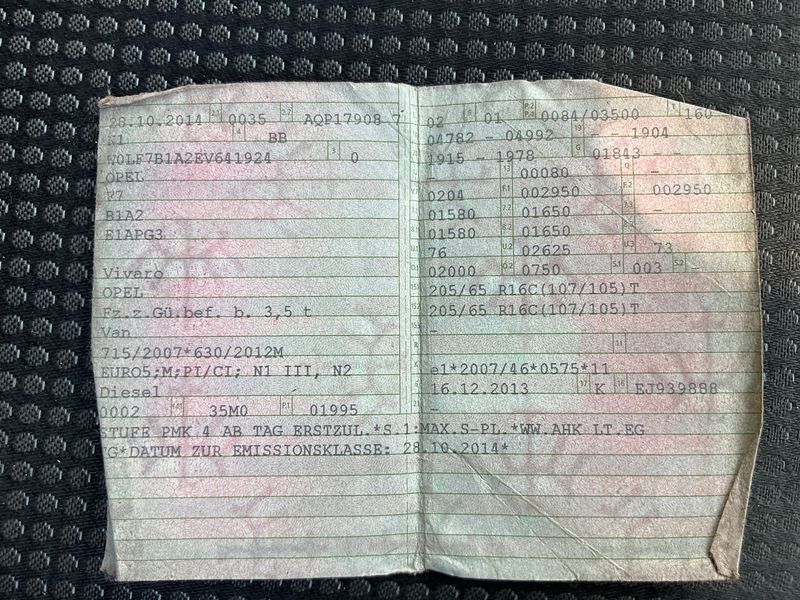 28.10.2014 2.1 0035 2.2 AQP17908 7
N1 BB
W0LF7B1A2EV641924 3 0
OPEL
B1A2
E1APG3
Vivaro
OPEL
Fz.z.Gü.bef. b. 3,5 t
Van
715/2007*630/2012M
EURO5;M;PI/CI; N1 III, N2
Diesel
0002 35M0 P.1 01995
02 01 0084/03500 160
04782 - 04992 19 - 1904
1915 - 1978 G 01843 - -
13 00080 Q -
0204 F.1 002950 F.2 002950
01580 7.2 01650 -
01580 8.2 01650 -
76 U.2 02625 U.3 73
02000 O.2 0750 S.1 003 S.2 -
205/65 R16C(107/105)T
205/65 R16C(107/105)T
-
11
e1*2007/46*0575*11
16.12.2013 17 K 16 EJ939888
-
STUFE PMK 4 AB TAG ERSTZUL.*S.1:MAX.S-PL.*WW.AHK LT.EG
TG*DATUM ZUR EMISSIONSKLASSE: 28.10.2014*